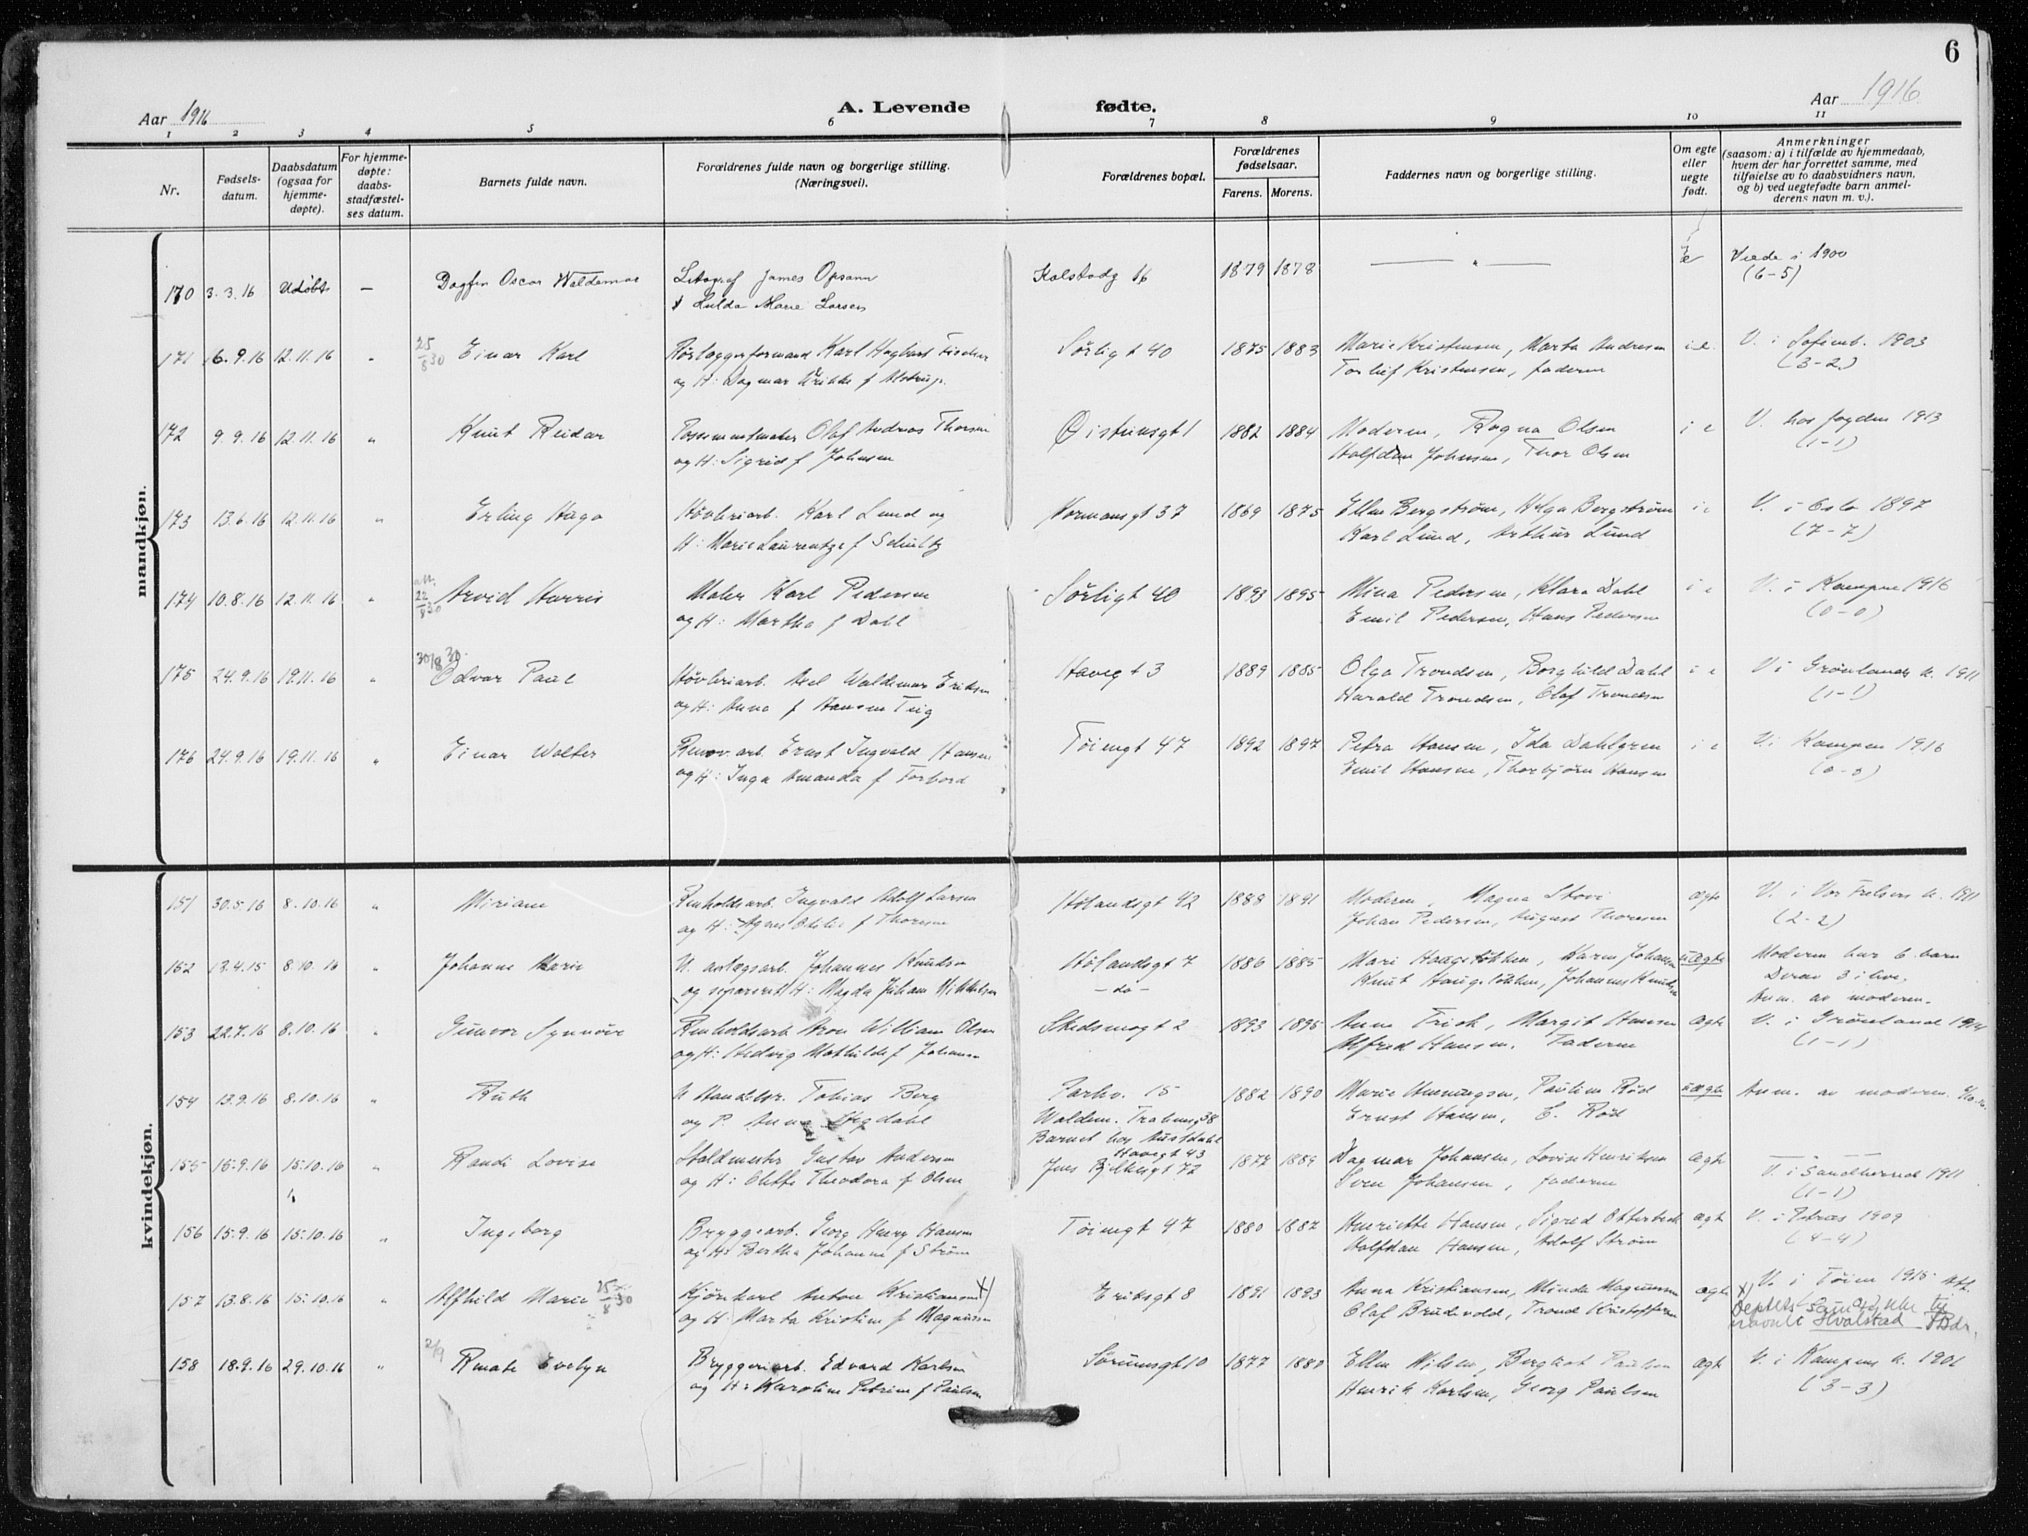 6
A. Levende fødte.
Aar 1916
Aar 1916
1 2 3 4 5 6 7 8 9 10 11
Nr.
Fødsels-
datum.
Daabsdatum
(ogsaa for
hjemme-
døpte).
For hjemme-
døpte:
daabs-
stadfæstel-
ses datum.
Barnets fulde navn.
Forældrenes fulde navn og borgerlige stilling.
(Næringsvei).
Forældrenes bopæl.
Forældrenes
fødselsaar.
Farens. Morens.
Faddernes navn og borgerlige stilling.
Om egte
eller
uegte
født.
Anmerkninger
(saasom: a) i tilfælde av hjemmedaab,
hvem der har forrettet samme, med
tilføielse av to daabsvidners navn,
og b) ved uegtefødte barn anmel-
derens navn m. v.).
mandkjøn.
170 3.3.16 Udøbt — Dagfin Oscar Waldemar Litograf James Opsann 1879 1878 — " — Viede i 1900
Hulda Marie Larsen Kolstadg 16 (6-5)
171 6.9.16 12.11.16 " 25/8 30 Einar Karl Rørlæggerformand Karl Hagbart Fischer Sørligt 40 1875 1883 Marie Kristensen, Marta Andresen i e. V. i Sofienb. 1903
og H: Dagmar f Alstrup. Torleif Kristensen, faderen (3-2)
172 9.9.16 12.11.16 " Knut Reidar Olaf Andreas Thorsen Øistensgt 1 1882 1884 Moderen, Ragna Olsen i e V. hos fogden 1913
og H: Sigrid f Johnsen Halfdan Johnsen, Thor Olsen (1-1)
173 13.6.16 12.11.16 " Erling Hago Høvleriarb. Karl Lund og Normansgt 37 1869 1875 Ellen Bergstrøm, Helga Bergstrøm i e V. i Oslo 1897
H: Marie Laurentze f Schultz Karl Lund, Arthur Lund (7-7)
174 10.8.16 12.11.16 " att. 22/8 30 Arvid Harris Maler Karl Pedersen Sørligt 40 1893 1895 Mina Pedersen, Klara Dahl i e V. i Kampen 1916
og H: Martha f Dahl Emil Pedersen, Hans Pedersen (0-0)
175 24.9.16 19.11.16 " 30/8 30. Odvar Paul Høvleriarb. Axel Waldemar Eriksen Havegt 3 1889 1885 Olga Trondsen, Borghild Dahl i e V i Grønlands k. 1911
og H: Anna f Hansen Teig Harald Trondsen, Olaf Trondsen (1-1)
176 24.9.16 19.11.16 " Einar Walter Renov. arb. Ernst Ingvald Hansen Tøiengt 47 1892 1897 Petra Hansen, Ida Dahlgren i e V. i Kampen 1916
og H: Inga Amanda f Torbord Emil Hansen, Thorbjørn Hansen (0-0)
kvindekjøn.
151 30.5.16 8.10.16 " Miriam Renholdsarb. Ingvald Adolf Larsen Hølandsgt 42 1888 1891 Moderen, Magna Stovi ægte V. i Vor Frelsers k. 1911
og H: Agnes Otilie f Thoresen Johan Pedersen, August Thoresen (2-2)
152 18.4.15 8.10.16 " Johanne Marie U. anlægsarb. Johannes Knudsen Hølandsgt 7 1886 1885 Mari Haugstøkken, Karen Johansen uægte Moderen har 6 barn
og separeret H: Magda Johans. Mikkelsen — do — Knut Haugstøkken, Johannes Knudsen Derav 3 i live.
Anm. av moderen.
153 22.7.16 8.10.16 " Gunvor Synnøve Renholdsarb Aron William Olsen Skedsmogt 2 1893 1895 Anna Frich, Margit Hansen ægte V. i Grønland 1914
og H: Hedvig Mathilde f Johansen Alfred Hansen. Faderen (1-1)
154 13.9.16 8.10.16 " Ruth U Handelsr. Tobias Berg Parkv. 15 1882 1890 Marie Henningsen, Pauline Rød uægte Anm. av moderen.
og P. Anna Høgdahl Waldem. Tranesgt 38 Ernst Hansen, E. Rød
Barnet hos Austdahl
Havegt 43
155 15.9.16 15.10.16 " Randi Lovise Staldmester Gustav Andersen Jens Bjelkesgt 72 1877 1889 Dagmar Johansen, Lovise Henriksen ægte V. i Sandherred 1911
og H: Olette Theodora f Olsen Sven Johansen, faderen (1-1)
156 15.9.16 15.10.16 " Ingeborg Bryggearb. Georg Henry Hansen Tøiengt 47 1880 1887 Henriette Hansen, Sigrid Otterbeck ægte V. i Petrus 1909
og H: Bertha Johanne f Strøm Halfdan Hansen, Adolf Strøm (4-4)
157 13.8.16 15.10.16 " Alfhild Marie 25/8 30 Kjørekarl Anton Kristiansen x) Eriksgt 8 1891 1893 Anna Kristiansen, Minda Magnussen ægte V. i Tøien 1915
og H: Marta Kristine f Magnussen Olaf Brudevold, Trond Kristoffersen x) navnet Hvalstad
158 18.9.16 29.10.16 " 2/9 Renate Evelyn Bryggeriarb. Edvard Karlsen Sørumsgt 10 1877 1880 Ellen Nilsen, Bergliot Paulsen ægte V. i Kampens k. 1901
og H: Karoline Petrine f Paulsen Henrik Karlsen, Georg Paulsen (3-3)